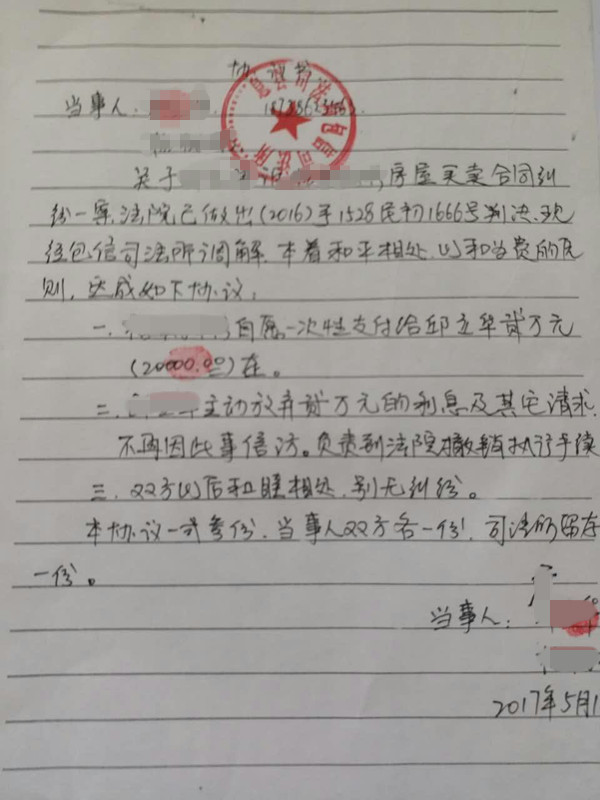 协议
当事人:
关于 房屋买卖合同纠
纷一案,法院已做出(2016)豫1528民初1666号判决,现
经包信司法所调解,本着和平相处,以和为贵的原
则,达成如下协议:
一. 自愿一次性支付给邱立华贰万元
(20000.00)在。
二. 主动放弃贰万元的利息及其它请求.
不再因此事信访。负责到法院撤销执行手续
三.双方以后和睦相处,别无纠纷。
本协议一式叁份,当事人双方各一份,司法所留存
一份。
当事人:
2017年5月1